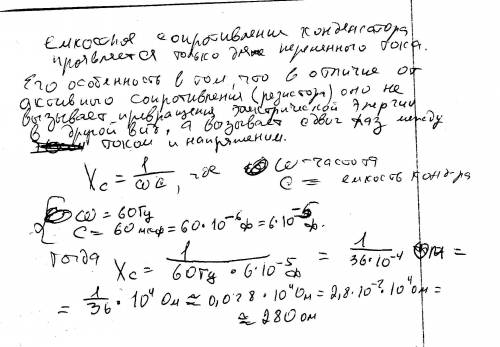 Емкостное сопротивление конденсатора
проявляется только для переменного тока.
Его особенность в том, что в отличие от
активного сопротивления (резистора) оно не
вызывает превращения электрической энергии
в другой вид, а вызывает сдвиг фаз между
током и напряжением.
Xc = 1/ωC, где ω - частота
C = емкость конд-ра
ω = 60 Гц
C = 60 мкф = 60·10⁻⁶ф = 6·10⁻⁵ф.
тогда Xc = 1/(60Гц · 6·10⁻⁵ф) = 1/(36·10⁻⁴) Ом =
= 1/36 · 10⁴ Ом ≈ 0,028·10⁴ Ом = 2,8·10⁻²·10⁴ ом =
≈ 280 ом